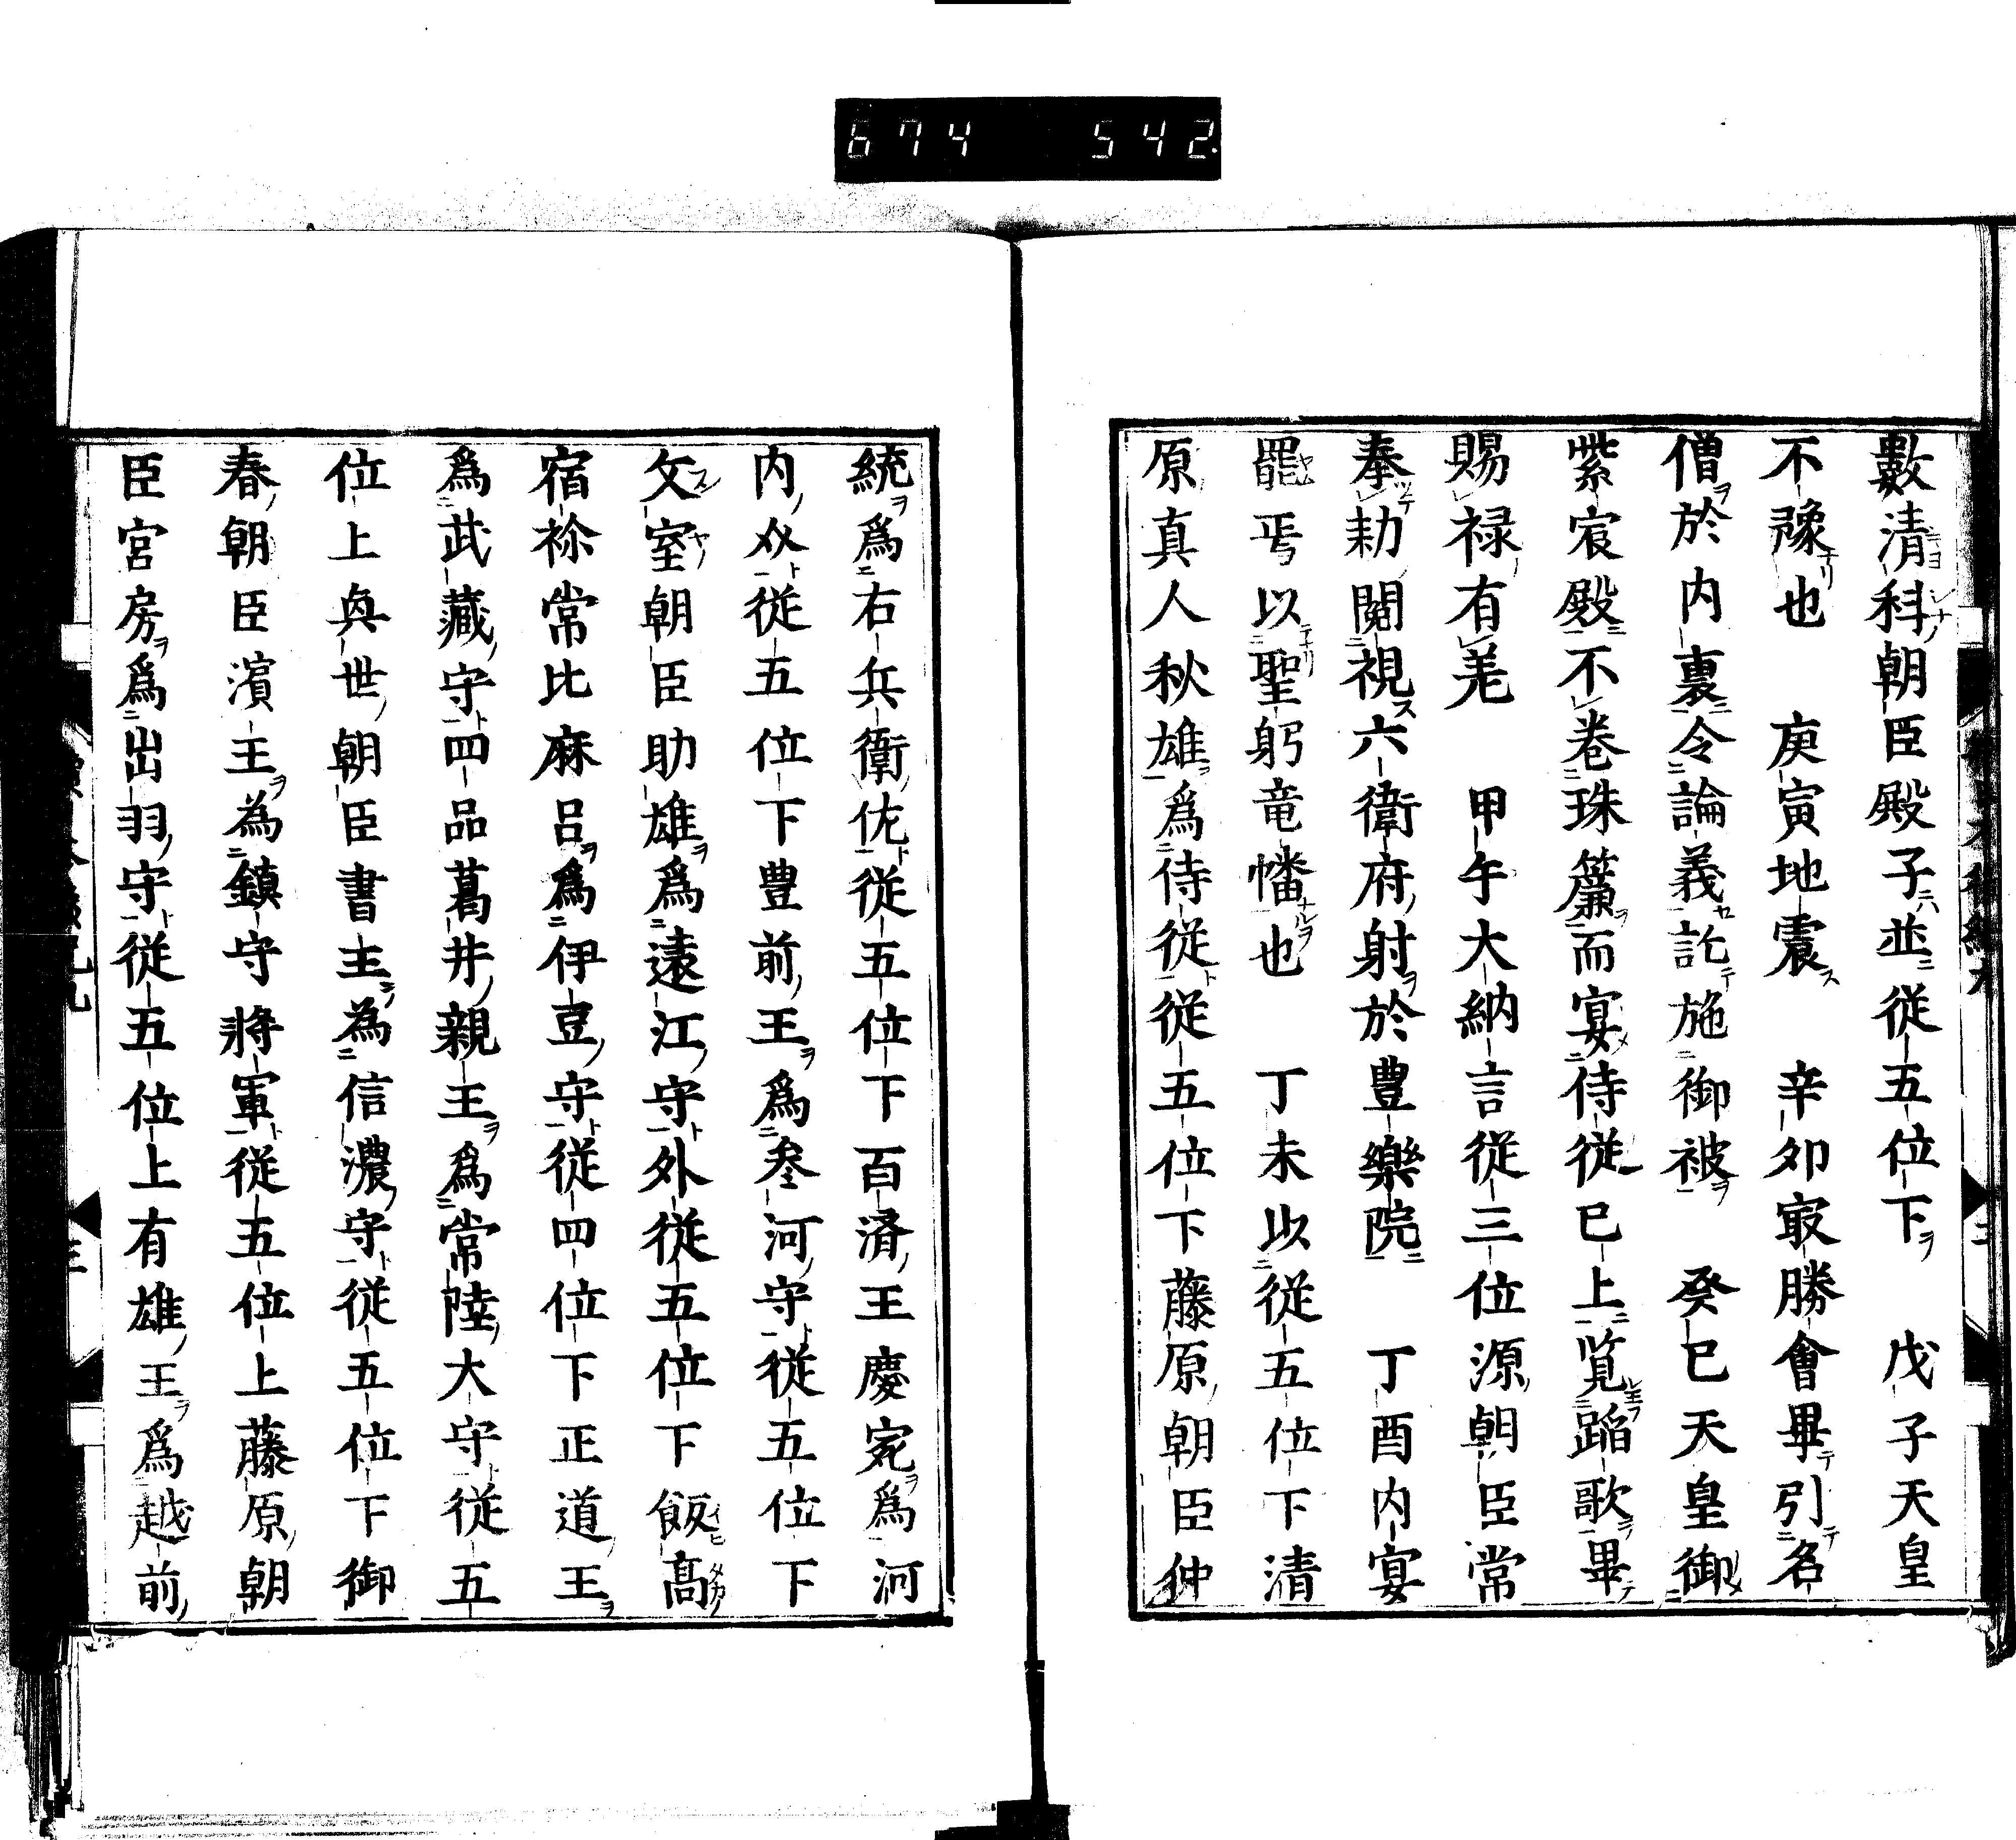 674 542
數清科朝臣殿子並從五位下 戊子天皇
不豫也 庚寅地震 辛卯㝡勝會畢引名
僧於内裏令論義訖施御被 癸巳天皇御
紫宸殿不卷珠簾而宴侍從已上覧蹈歌畢
賜禄有差 甲午大納言從三位源朝臣常
奉勅閲視六衛府射於豊樂院 丁酉内宴
罷焉以聖躬竜幡也 丁未以從五位下清
原真人秋雄爲侍從從五位下藤原朝臣仲
統爲右兵衛佐從五位下百濟王慶宛爲河
内守從五位下豊前王爲叄河守從五位下
文室朝臣助雄爲遠江守外從五位下飯髙
宿祢常比麻呂爲伊豆守從四位下正道王
爲武藏守四品葛井親王爲常陸大守從五
位上與世朝臣書主為信濃守從五位下御
春朝臣濱主為鎮守將軍從五位上藤原朝
臣宮房爲出羽守從五位上有雄王爲越前